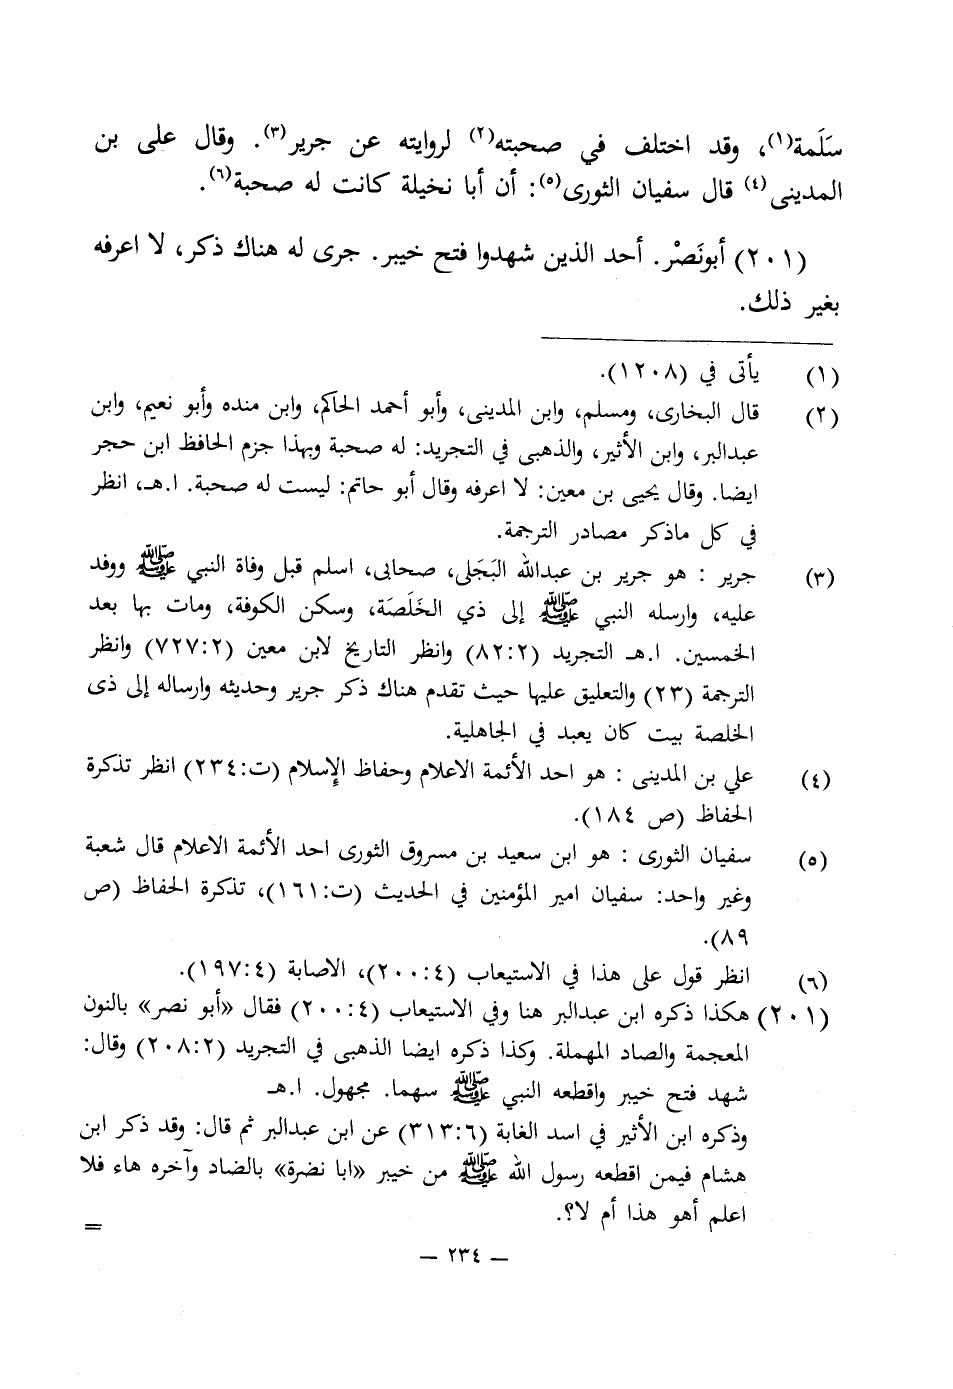 سَلَمة(١)، وقد اختلف في صحبته(٢) لروايته عن جرير(٣). وقال على بن
المدينى(٤) قال سفيان الثورى(٥): أن أبا نخيلة كانت له صحبة(٦).
(٢٠١) أبونَصْر. أحد الذين شهدوا فتح خيبر. جرى له هناك ذكر، لا اعرفه
بغير ذلك.
(١) يأتى في (١٢٠٨).
(٢) قال البخارى، ومسلم، وابن المدينى، وأبو أحمد الحاكم، وابن منده وأبو نعيم، وابن
عبدالبر، وابن الأثير، والذهبى في التجريد: له صحبة وبهذا جزم الحافظ ابن حجر
ايضا. وقال يحيى بن معين: لا اعرفه وقال أبو حاتم: ليست له صحبة. ا.هـ، انظر
في كل ماذكر مصادر الترجمة.
(٣) جرير : هو جرير بن عبدالله البَجَلى، صحابى، اسلم قبل وفاة النبي ﷺ ووفد
عليه، وارسله النبي ﷺ إلى ذي الخَلَصَة، وسكن الكوفة، ومات بها بعد
الخمسين. ا.هـ التجريد (٨٢:٢) وانظر التاريخ لابن معين (٧٢٧:٢) وانظر
الترجمة (٢٣) والتعليق عليها حيث تقدم هناك ذكر جرير وحديثه وارساله إلى ذى
الخلصة بيت كان يعبد في الجاهلية.
(٤) علي بن المدينى : هو احد الأئمة الاعلام وحفاظ الإسلام (ت:٢٣٤) انظر تذكرة
الحفاظ (ص ١٨٤).
(٥) سفيان الثورى : هو ابن سعيد بن مسروق الثورى احد الأئمة الاعلام قال شعبة
وغير واحد: سفيان امير المؤمنين في الحديث (ت:١٦١)، تذكرة الحفاظ (ص
٨٩).
(٦) انظر قول على هذا في الاستيعاب (٢٠٠:٤)، الاصابة (١٩٧:٤).
(٢٠١) هكذا ذكره ابن عبدالبر هنا وفي الاستيعاب (٢٠٠:٤) فقال «أبو نصر» بالنون
المعجمة والصاد المهملة. وكذا ذكره ايضا الذهبى في التجريد (٢٠٨:٢) وقال:
شهد فتح خيبر واقطعه النبي ﷺ سهما. مجهول. ا.هـ
وذكره ابن الأثير في اسد الغابة (٣١٣:٦) عن ابن عبدالبر ثم قال: وقد ذكر ابن
هشام فيمن اقطعه رسول الله ﷺ من خيبر «ابا نضرة» بالضاد وآخره هاء فلا
اعلم أهو هذا أم لا؟.
=
— ٢٣٤ —